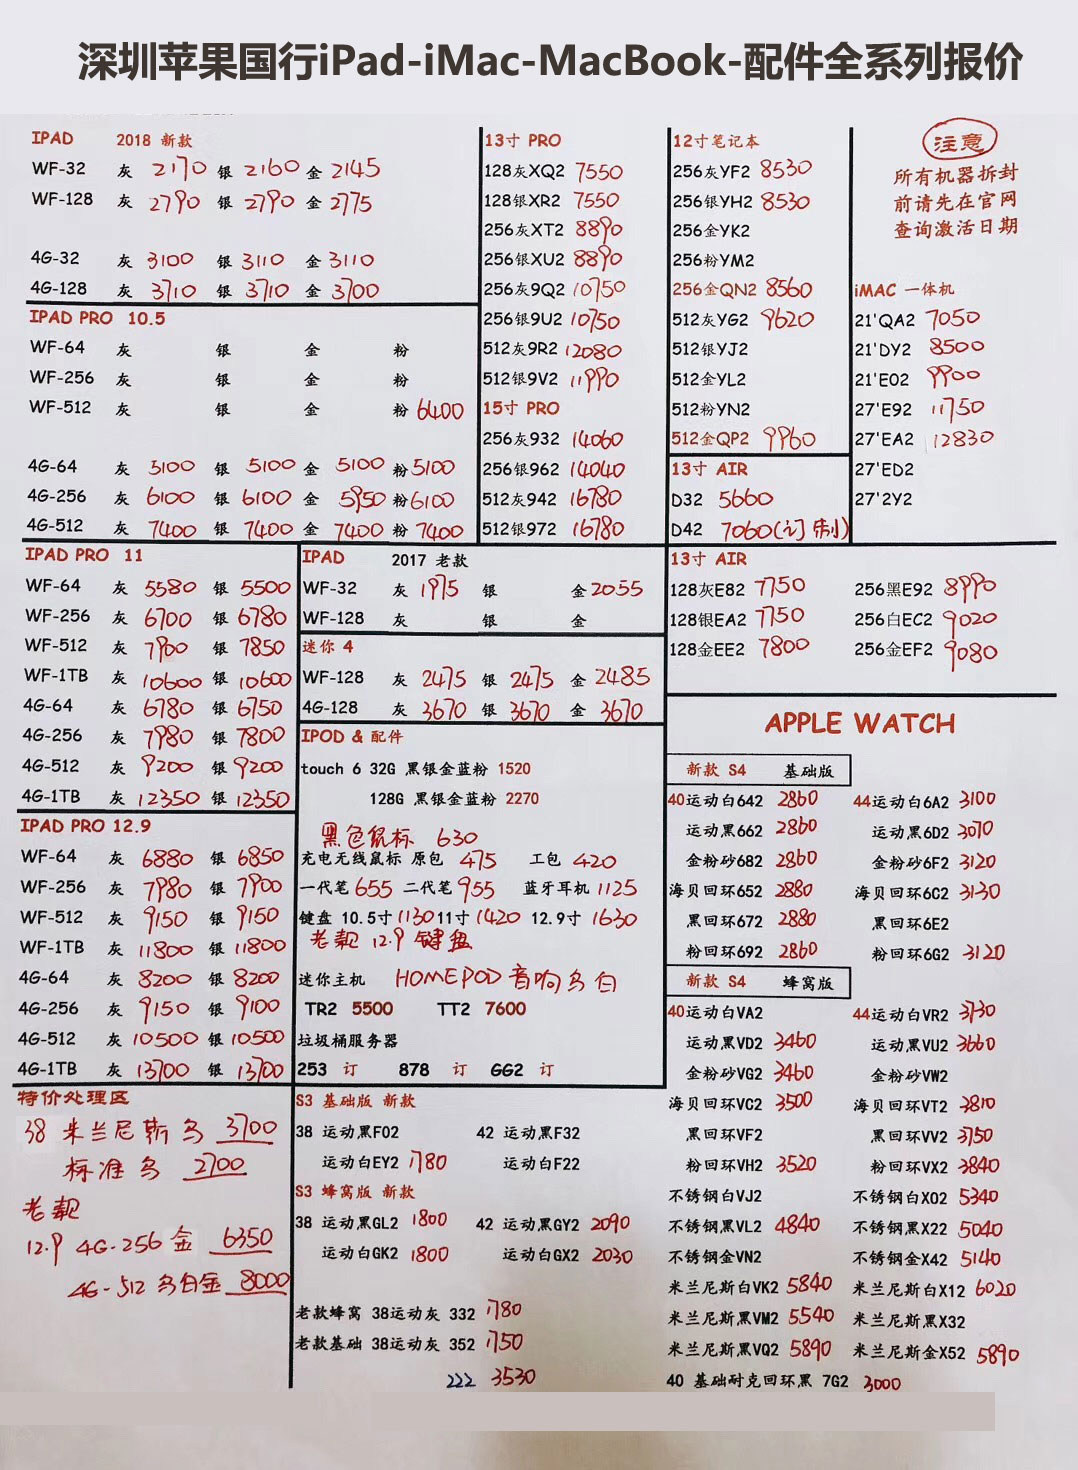 深圳苹果国行iPad-iMac-MacBook-配件全系列报价
IPAD 2018 新款
WF-32 灰 2170 银 2160 金 2145
WF-128 灰 2790 银 2790 金 2775
4G-32 灰 3100 银 3110 金 3110
4G-128 灰 3710 银 3710 金 3700
IPAD PRO 10.5
WF-64 灰 银 金 粉
WF-256 灰 银 金 粉
WF-512 灰 银 金 粉 6400
4G-64 灰 5100 银 5100 金 5100 粉 5100
4G-256 灰 6100 银 6100 金 5950 粉 6100
4G-512 灰 7400 银 7400 金 7400 粉 7400
13寸 PRO
128灰XQ2 7550
128银XR2 7550
256灰XT2 8890
256银XU2 8890
256灰9Q2 10750
256银9U2 10750
512灰9R2 12080
512银9V2 11990
15寸 PRO
256灰932 14060
256银962 14040
512灰942 16780
512银972 16780
12寸笔记本
256灰YF2 8530
256银YH2 8530
256金YK2
256粉YM2
256金QN2 8560
512灰YG2 9620
512银YJ2
512金YL2
512粉YN2
512金QP2 9960
13寸 AIR
D32 5660
D42 7060(订制)
注意
所有机器拆封
前请先在官网
查询激活日期
iMAC 一体机
21'QA2 7050
21'DY2 8500
21'E02 9900
27'E92 11750
27'EA2 12830
27'ED2
27'2Y2
IPAD PRO 11
WF-64 灰 5580 银 5500
WF-256 灰 6700 银 6780
WF-512 灰 7900 银 7850
WF-1TB 灰 10600 银 10600
4G-64 灰 6780 银 6750
4G-256 灰 7980 银 7800
4G-512 灰 9200 银 9200
4G-1TB 灰 12350 银 12350
IPAD PRO 12.9
WF-64 灰 6880 银 6850
WF-256 灰 7980 银 7900
WF-512 灰 9150 银 9150
WF-1TB 灰 11800 银 11800
4G-64 灰 8200 银 8200
4G-256 灰 9150 银 9100
4G-512 灰 10500 银 10500
4G-1TB 灰 13700 银 13700
IPAD 2017 老款
WF-32 灰 1975 银 金 2055
WF-128 灰 银 金
迷你 4
WF-128 灰 2475 银 2475 金 2485
4G-128 灰 3670 银 3670 金 3670
IPOD & 配件
touch 6 32G 黑银金蓝粉 1520
128G 黑银金蓝粉 2270
黑色鼠标 630
充电无线鼠标 原包 475 工包 420
一代笔 655 二代笔 955 蓝牙耳机 1125
键盘 10.5寸 1130 11寸 1420 12.9寸 1630
老款 12.9 键盘
迷你主机 HOMEPOD 音响多 白
TR2 5500 TT2 7600
垃圾桶服务器
253 订 878 订 GG2 订
13寸 AIR
128灰E82 7750 256黑E92 8990
128银EA2 7750 256白EC2 9020
128金EE2 7800 256金EF2 9080
APPLE WATCH
新款 S4 基础版
40运动白642 2860 44运动白6A2 3100
运动黑662 2860 运动黑6D2 3070
金粉砂682 2860 金粉砂6F2 3120
海贝回环652 2880 海贝回环6C2 3130
黑回环672 2880 黑回环6E2
粉回环692 2860 粉回环6G2 3120
新款 S4 蜂窝版
40运动白VA2 44运动白VR2 3730
运动黑VD2 3460 运动黑VU2 3660
金粉砂VG2 3460 金粉砂VW2
海贝回环VC2 3500 海贝回环VT2 3810
黑回环VF2 黑回环VV2 3750
粉回环VH2 3520 粉回环VX2 3840
不锈钢白VJ2 不锈钢白XO2 5340
不锈钢黑VL2 4840 不锈钢黑X22 5040
不锈钢金VN2 不锈钢金X42 5140
米兰尼斯白VK2 5840 米兰尼斯白X12 6020
米兰尼斯黑VM2 5540 米兰尼斯黑X32
米兰尼斯黑VQ2 5890 米兰尼斯金X52 5890
40 基础耐克回环黑 7G2 3000
特价处理区
38 米兰尼斯 多 3700
标准 多 2700
老款
12.9 4G-256 金 6350
4G-512 多白金 8000
S3 基础版 新款
38 运动黑F02 42 运动黑F32
运动白EY2 1780 运动白F22
S3 蜂窝版 新款
38 运动黑GL2 1800 42 运动黑GY2 2090
运动白GK2 1800 运动白GX2 2030
老款蜂窝 38运动灰 332 1780
老款基础 38运动灰 352 1750
222 3530